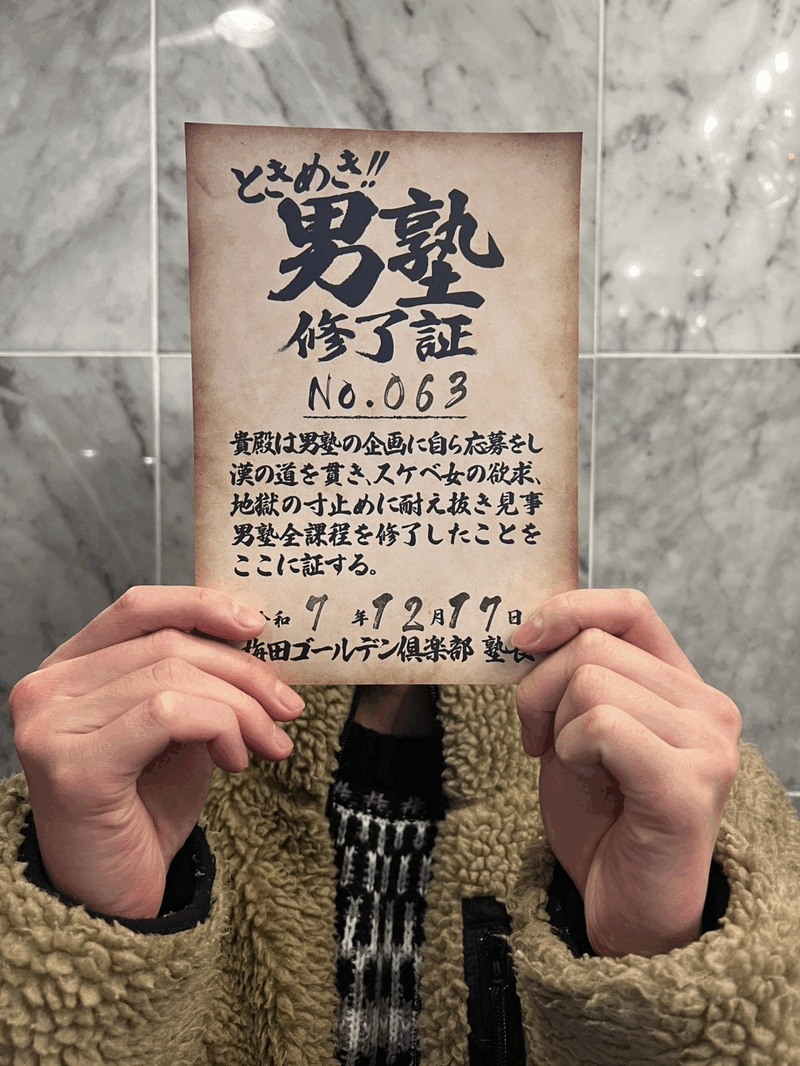 ときめき!!
男塾
修了証
No.063
貴殿は男塾の企画に自ら応募をし
漢の道を貫き、スケベ女の欲求、
地獄の寸止めに耐え抜き見事
男塾全課程を修了したことを
ここに証する。
令和 7 年12月17日
梅田ゴールデン倶楽部 塾長